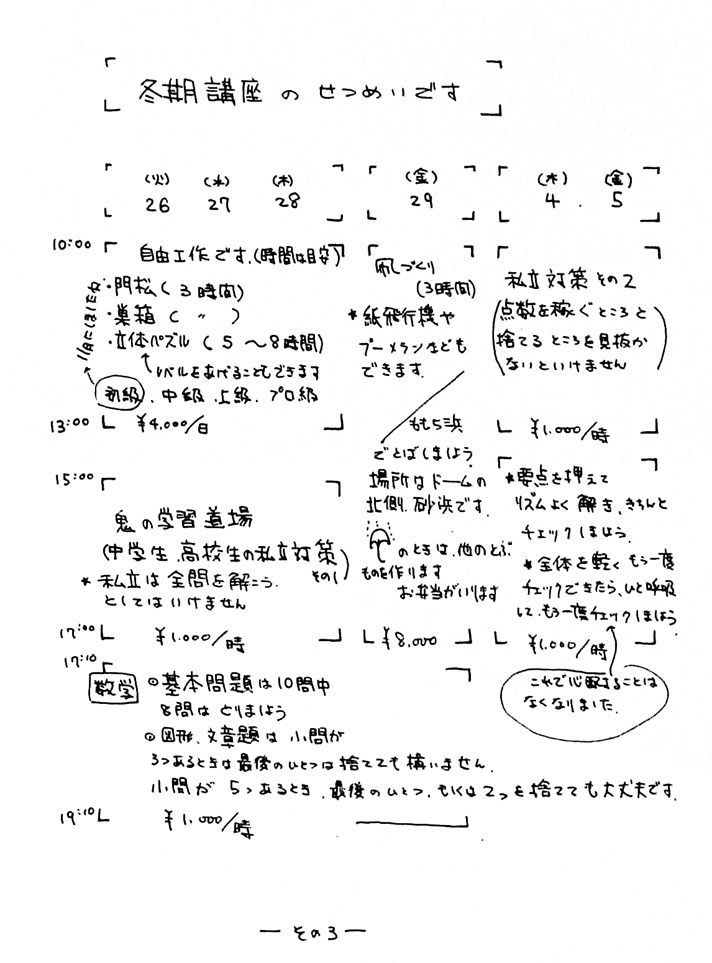 冬期講座のせつめいです
(火) (水) (木) (金) (木) (金)
26 27 28 29 4 . 5
10:00 自由工作です.(時間は目安)
・門松(3時間)
・巣箱( 〃 )
・立体パズル(5〜8時間)
レベルをあげることもできます
初級、中級.上級.プロ級
13:00 ¥4,000/日
凧づくり
(3時間)
*紙飛行機や
ブーメランなども
できます.
ももち浜
でとばしましょう
場所はドームの
北側.砂浜です.
のときは、他のとぶ
ものを作ります
お弁当がいります
¥8,000
私立対策その2
(点数を稼ぐところと
捨てるところを見抜か
ないといけません)
¥1,000/時
15:00
鬼の学習道場
(中学生、高校生の私立対策)
その1
*私立は全問を解こう.
としてはいけません
17:00 ¥1,000/時
*要点を押えて
リズムよく解き、きちんと
チェックしましょう.
*全体を軽くもう一度
チェックできたら、ひと呼吸
して、もう一度チェックしましょう
¥1,000/時
これで心配することは
なくなりました.
17:10
数学 ◎基本問題は10問中
8問はとりましょう
◎図形、文章題は小問が
3つあるときは最後のひとつは捨てても構いません.
小問が5つあるとき.最後のひとつ.もしくは2つを捨てても大丈夫です.
19:10 ¥1,000/時
— その3 —